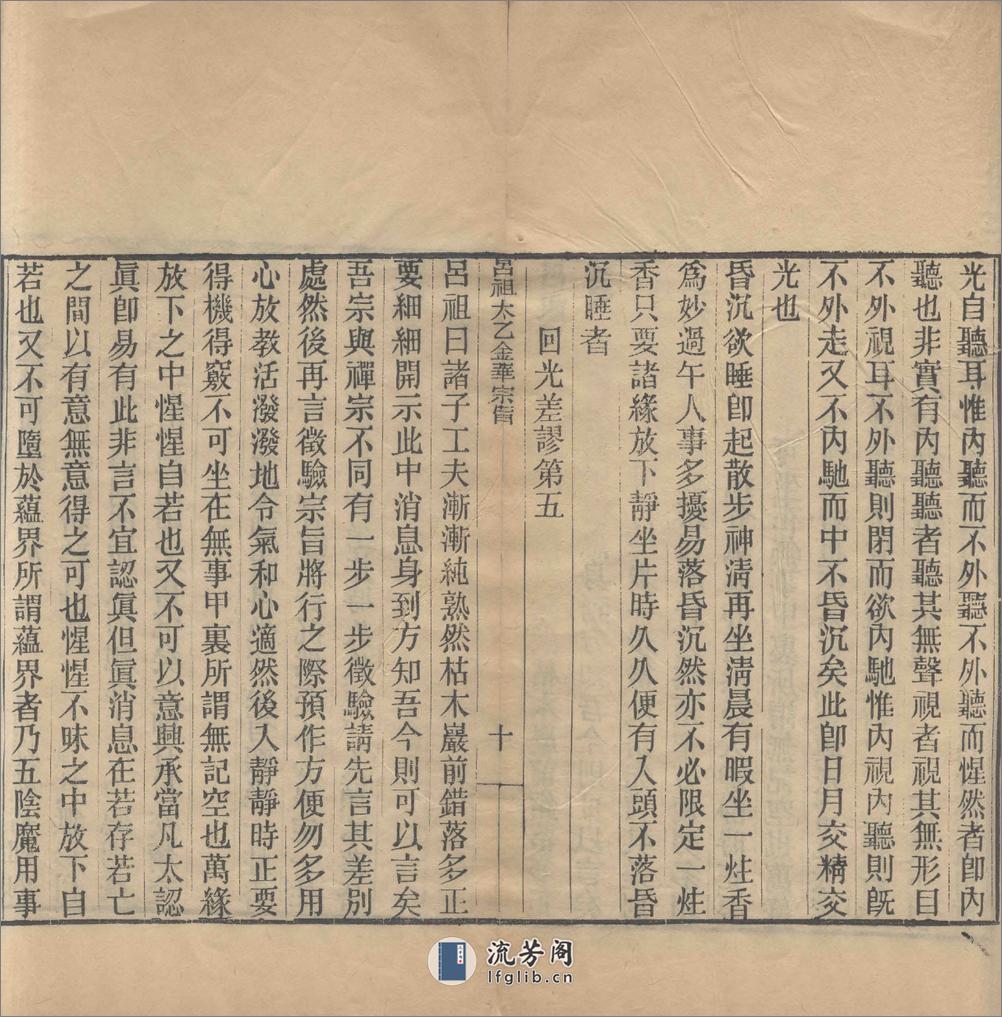 光自聽耳惟內聽而不外聽不外聽而惺然者卽內
聽也非實有內聽聽者聽其無聲視者視其無形目
不外視耳不外聽則閉而欲內馳惟內視內聽則旣
不外走又不內馳而中不昏沉矣此卽日月交精交
光也
昏沉欲睡卽起散步神淸再坐淸晨有暇坐一炷香
爲妙過午人事多擾易落昏沉然亦不必限定一炷
香只要諸緣放下靜坐片時久久便有入頭不落昏
沉睡者
回光差謬第五
呂祖太乙金華宗旨
十
呂祖曰諸子工夫漸漸純熟然枯木巖前錯落多正
要細細開示此中消息身到方知吾今則可以言矣
吾宗與禪宗不同有一步一步徵驗請先言其差別
處然後再言徵驗宗旨將行之際預作方便勿多用
心放教活潑潑地令氣和心適然後入靜靜時正要
得機得竅不可坐在無事甲裏所謂無記空也萬緣
放下之中惺惺自若也又不可以意興承當凡太認
眞卽易有此非言不宜認眞但眞消息在若存若亡
之間以有意無意得之可也惺惺不昧之中放下自
若也又不可墮於蘊界所謂蘊界者乃五陰魔用事
流芳阁
lfglib.cn